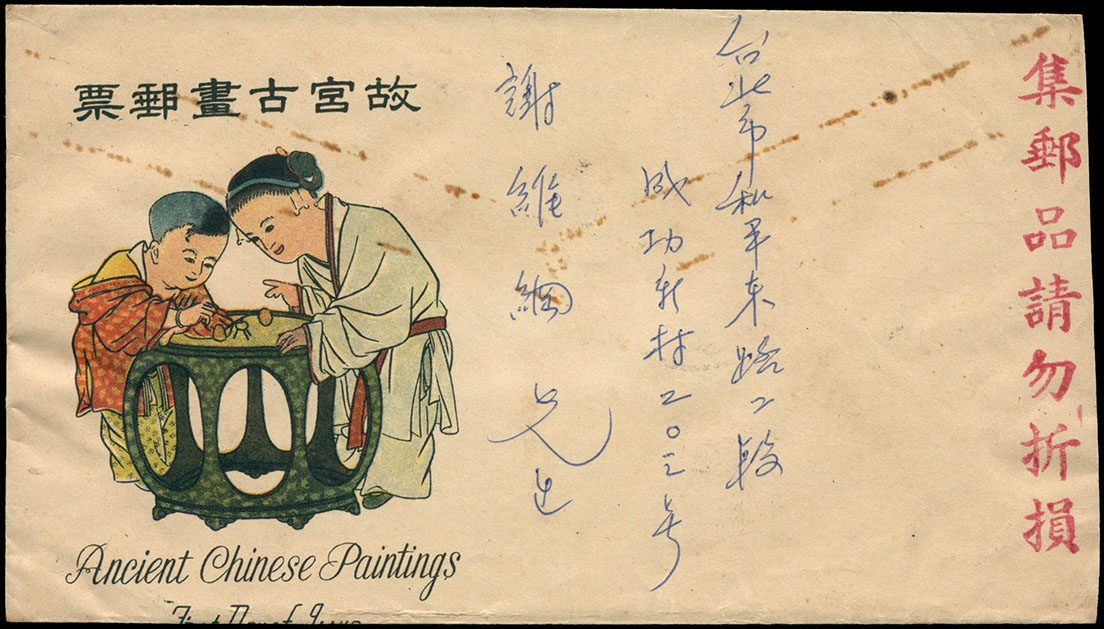 集郵品請勿折損
台北市和平東路二段
成功新村二〇三号
謝維綱兄
故宮古畫郵票
Ancient Chinese Paintings
First Day of Issue